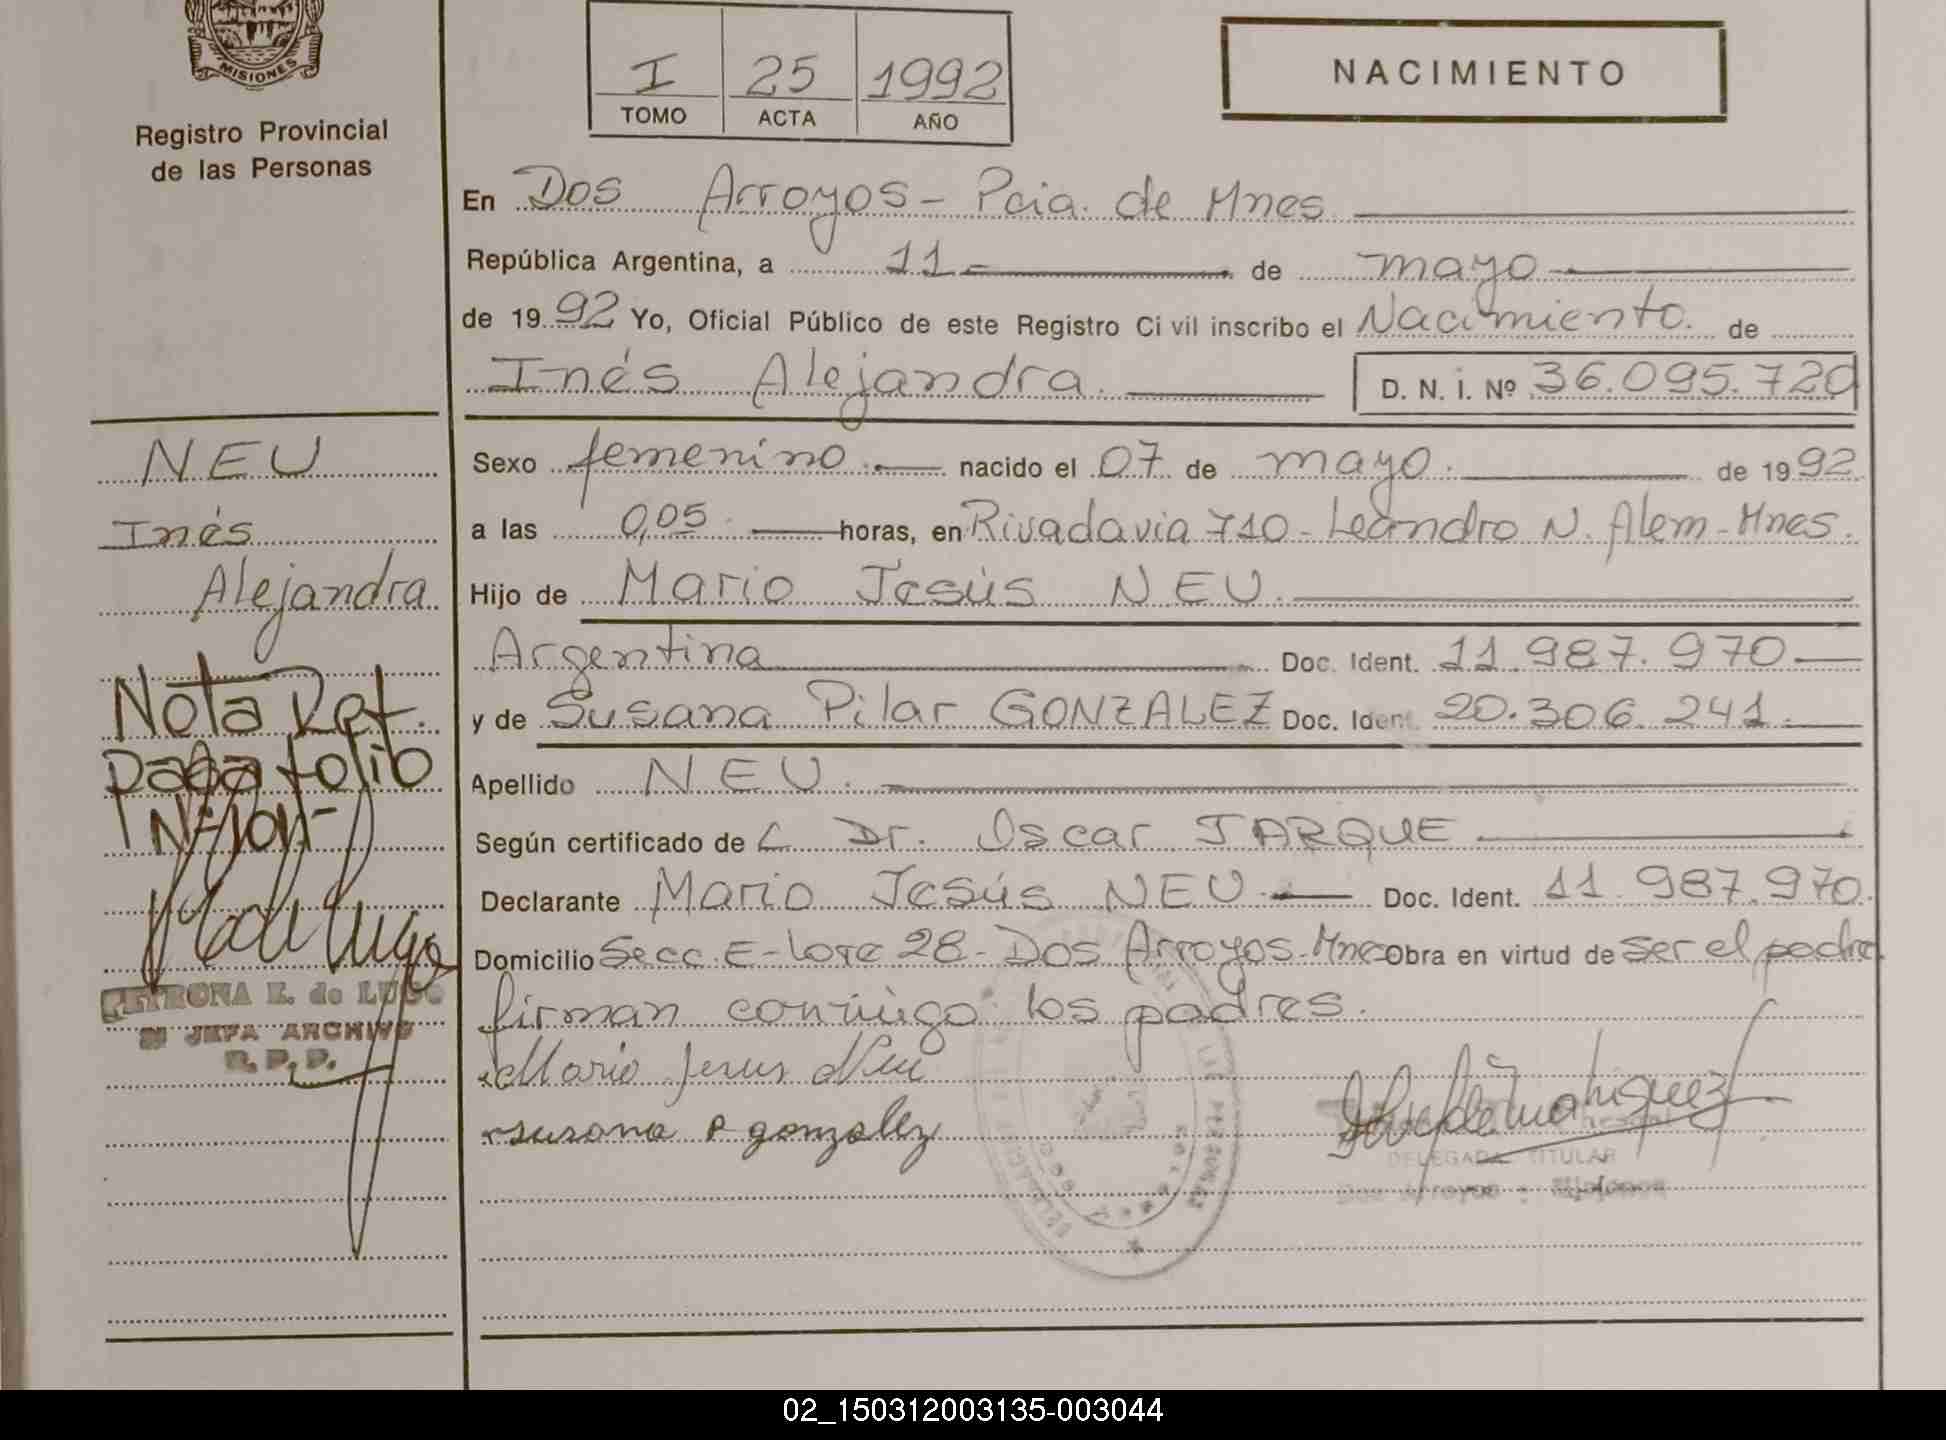 MISIONES
Registro Provincial
de las Personas
I 25 1992
TOMO ACTA AÑO
NACIMIENTO
En Dos Arroyos - Pcia. de Mnes
República Argentina, a 11 - de mayo
de 19 92 Yo, Oficial Público de este Registro Civil inscribo el Nacimiento. de
Inés Alejandra. D. N. I. Nº 36.095.720
NEU
Inés
Alejandra
Nota Ref.
folio
Sexo femenino. nacido el 07 de mayo. de 19 92
a las 0,05. horas, en Rivadavia 710 - Leandro N. Alem - Mnes.
Hijo de Mario Jesús NEU.
Argentina Doc. Ident. 11.987.970
y de Susana Pilar GONZALEZ Doc. Ident. 20.306.241.
Apellido NEU.
Según certificado de L Dr. Oscar JARQUE
Declarante Mario Jesús NEU Doc. Ident. 11.987.970.
Domicilio Secc. E - Lote 28 - Dos Arroyos - Mnes Obra en virtud de ser el padre
firman conmigo los padres.
Mario Jesus Neu
susana P gonzalez
PETRONA E. de LUGO
JEFA ARCHIVO
R. P. P.
DELEGADA TITULAR
Dos Arroyos - Misiones
02_150312003135-003044